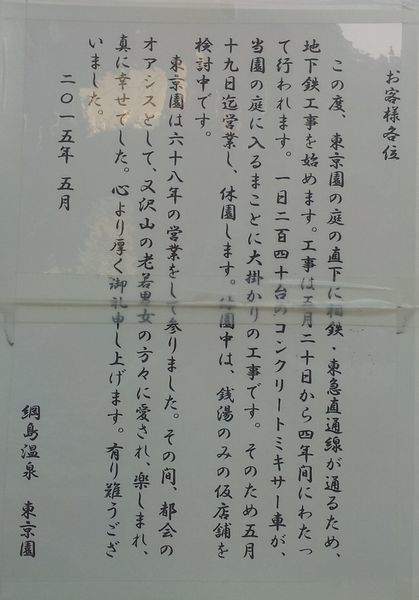 お客様各位
この度、東京園の庭の直下に相鉄・東急直通線が通るため、
地下鉄工事を始めます。工事は五月二十日から四年間にわたっ
て行われます。一日二百四十台のコンクリートミキサー車が、
当園の庭に入るまことに大掛かりの工事です。そのため五月
十九日迄営業し、休園します。休園中は、銭湯のみの仮店舗を
検討中です。
東京園は六十八年の営業をして参りました。その間、都会の
オアシスとして、又沢山の老若男女の方々に愛され、楽しまれ、
真に幸せでした。心より厚く御礼申し上げます。有り難うござ
いました。
二〇一五年 五月
綱島温泉 東京園